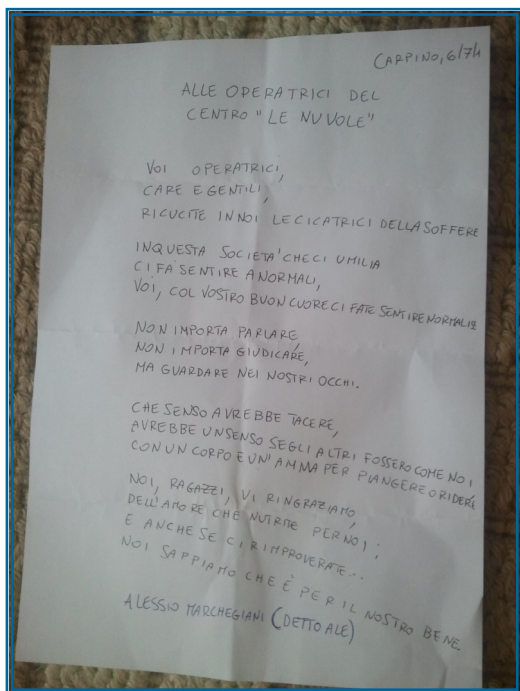 CARPINO, 6/7/4
ALLE OPERATRICI DEL
CENTRO "LE NUVOLE"
VOI OPERATRICI,
CARE E GENTILI,
RICUCITE IN NOI LE CICATRICI DELLA SOFFERE
IN QUESTA SOCIETA' CHE CI UMILIA
CI FA' SENTIRE ANORMALI,
VOI, COL VOSTRO BUON CUORE CI FATE SENTIRE NORMALI!!
NON IMPORTA PARLARE,
NON IMPORTA GIUDICARE,
MA GUARDARE NEI NOSTRI OCCHI.
CHE SENSO AVREBBE TACERE,
AVREBBE UN SENSO SE GLI ALTRI FOSSERO COME NOI
CON UN CORPO E UN'AMNA PER PIANGERE O RIDERE
NOI, RAGAZZI, VI RINGRAZIAMO,
DELL'AMORE CHE NUTRITE PER NOI;
E ANCHE SE CI RIMPROVERATE...
NOI SAPPIAMO CHE È PER IL NOSTRO BENE.
ALESSIO MARCHEGIANI (DETTO ALE)